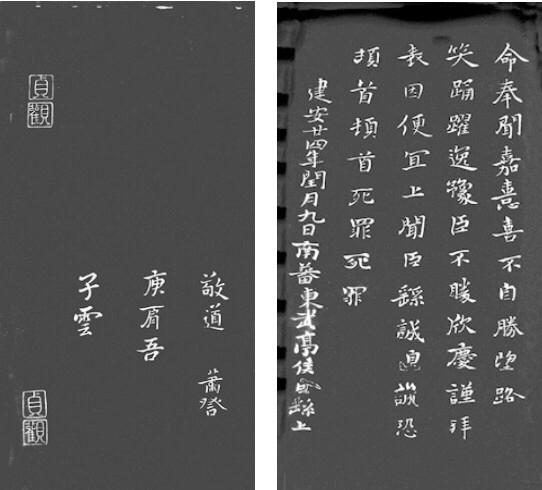 命奉聞嘉憙喜不自勝望路
笑踊躍逸豫臣不勝欣慶謹拜
表因便宜上聞臣繇誠惶誠恐
頓首頓首死罪死罪
建安廿四年閏月九日南蕃東武亭侯臣繇上
敬道 蕭
庾肩吾
子雲
貞觀
貞觀